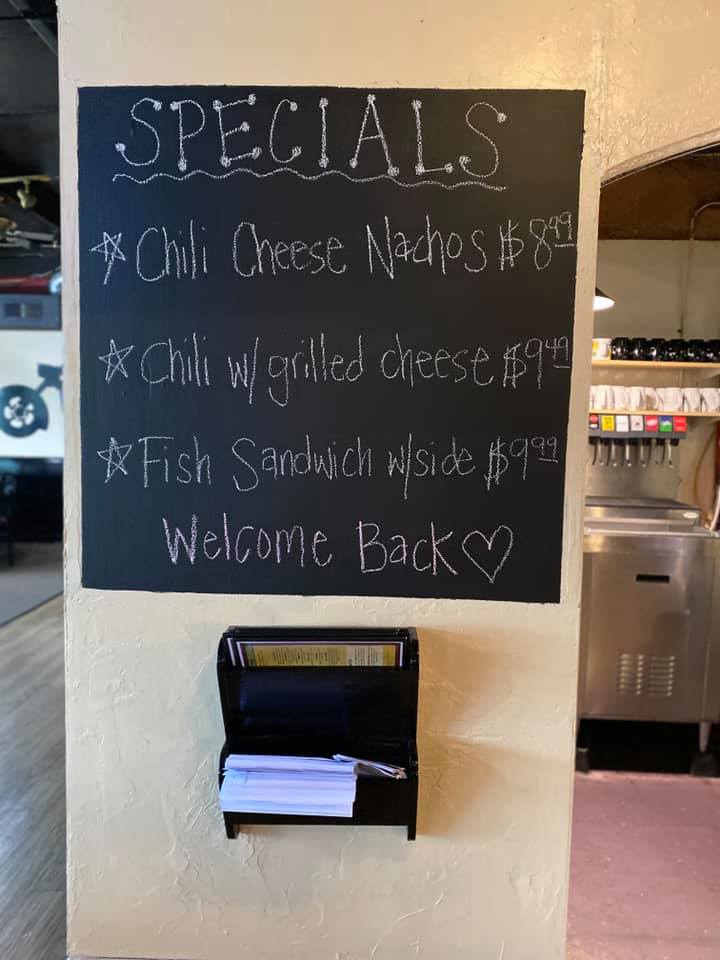 SPECIALS
Chili Cheese Nachos $8.99
Chili w/ grilled cheese $9.49
Fish Sandwich w/side $9.99
Welcome Back